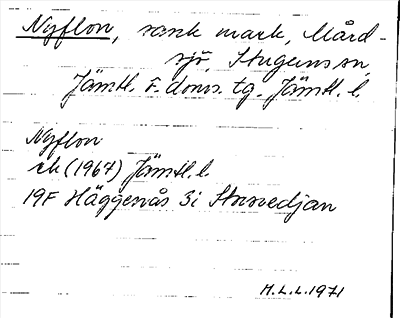 Nyflon, sank mark, Mård-
sjö, Stuguns sn,
Jämtl. ö. doms. tg. Jämtl. l.
Nyflon
ek (1967) Jämtl. l.
19F Häggenås 3i Stuvedjan
M.L.L. 1971